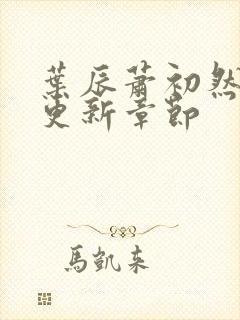 葉辰蕭初然
更新章節
馬凱來